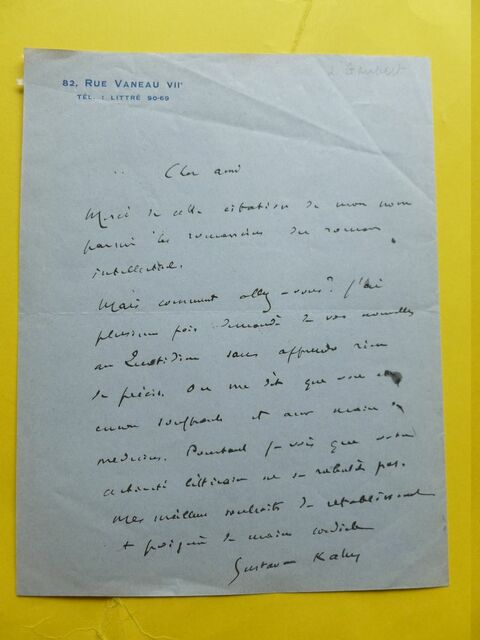 82, RUE VANEAU VIIe
TÉL. : LITTRÉ 90-69
à Gaubert
Cher ami
Merci de cette citation de mon nom
parmi les romanciers du roman
intellectuel.
Mais comment allez-vous? J'ai
plusieurs fois demandé de vos nouvelles
au Quotidien sans apprendre rien
de précis. On me dit que vous
encore souffrant et aux mains
médecins. Pourtant je vois que votre
activité littéraire ne se ralentit pas.
Mes meilleurs souhaits de rétablissement
+ poignée de main cordiale
Gustave Kahn